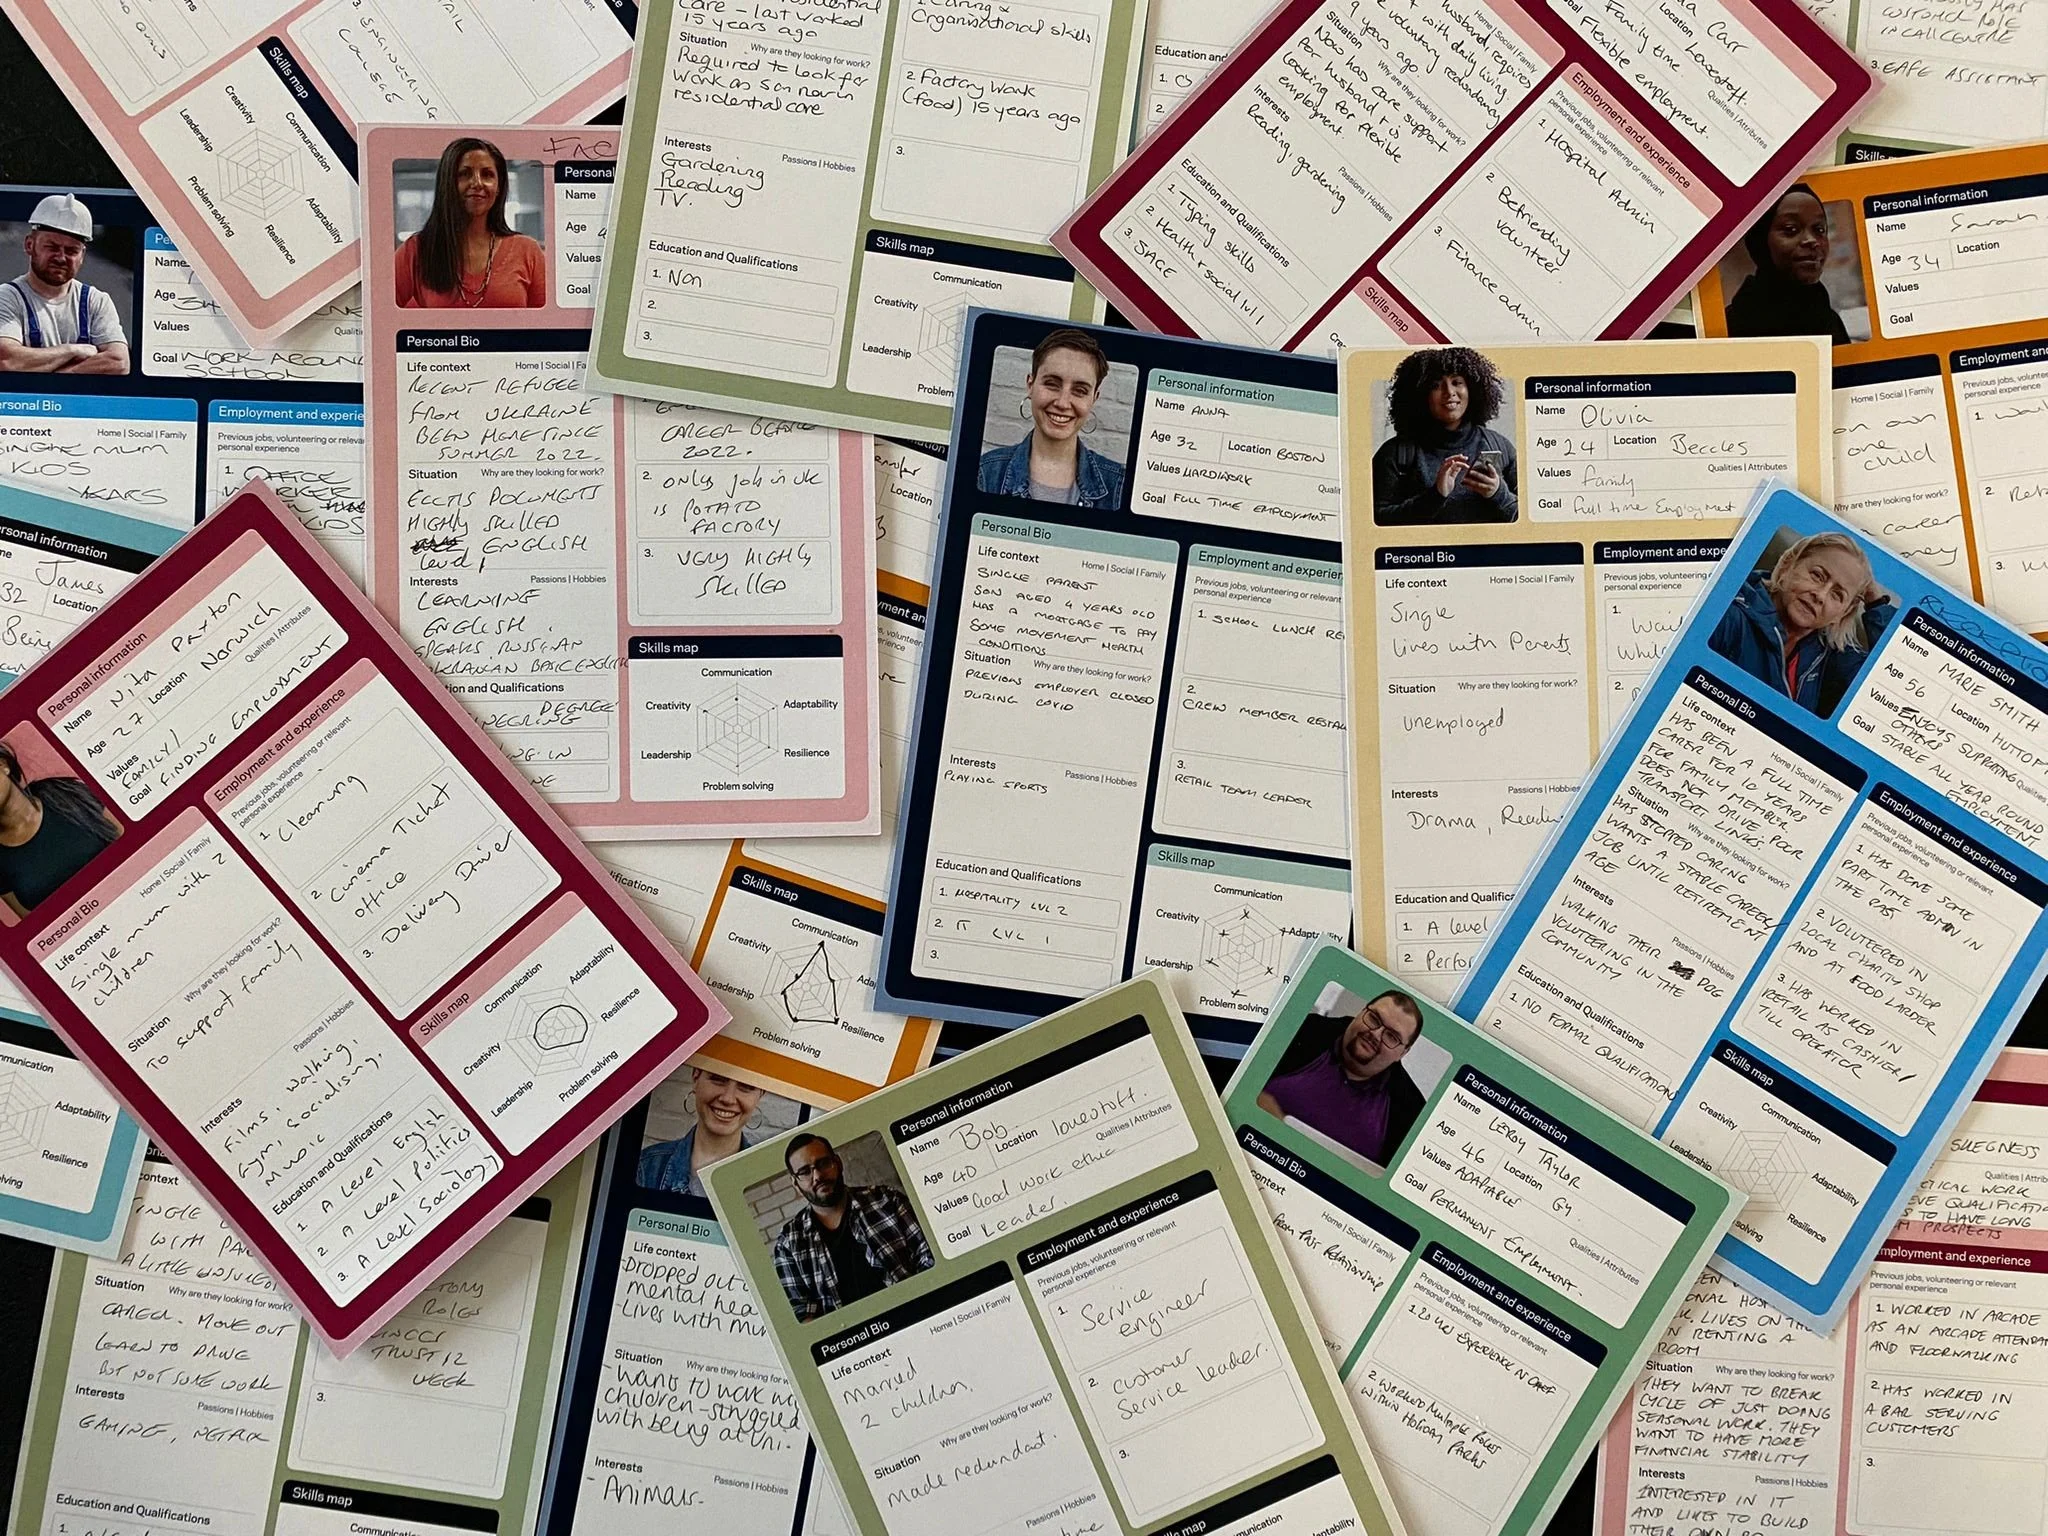 Skills map
Creativity
Communication
Leadership
Adaptability
Problem solving
Resilience
ENGINEERING
Care - last worked
15 years ago
Situation Why are they looking for work?
Required to look for
work as son now in
residential care
Interests Passions | Hobbies
Gardening
Reading
TV.
Education and Qualifications
1. Non
2.
3.
Organisational skills
2. Factory Work
(food) 15 years ago
3.
Skills map
Communication
Creativity
Leadership
husband, requires
with daily living
voluntary redundancy
9 years ago.
Home | Social | Family
Situation Why are they looking for work?
Now has care & support
for husband & is
looking for flexible
employment.
Interests Passions | Hobbies
Reading, gardening
Education and Qualifications
1. Typing skills
2. Health & social lvl 1
3. SAGE
Carr
Lowestoft.
Family time.
Qualities | Attributes
Goal Flexible employment.
Employment and experience
Previous jobs, volunteering or relevant
personal experience
1. Hospital Admin
2. Befriending
volunteer
3. Finance admin
Skills map
CUSTOMER ROLE
IN CALL CENTRE
3. CAFE ASSISTANT
Personal information
Name Sarah
Age 34 Location
Values
Goal
Home | Social | Family
on own
one
child
Why are they looking for work?
career
Name
Age 34
Values
Goal WORK AROUND
SCHOOL
Personal Bio
Life context Home | Social | Family
SINGLE MUM
KIDS
YEARS
Employment and experience
Previous jobs, volunteering or relevant
personal experience
1. OFFICE
WORKER
Personal
Name
Age
Values
Goal
Personal Bio
Life context Home | Social |
RECENT REFUGEE
FROM UKRAINE
BEEN HERE SINCE
SUMMER 2022.
Situation Why are they looking for work?
ECCTIS DOCUMENTS
HIGHLY SKILLED
ENGLISH
level 1
Interests Passions | Hobbies
LEARNING
ENGLISH.
SPEAKS RUSSIAN
UKRAINIAN BASIC ENGLISH
DEGREE
CAREER BEFORE
2022.
2. ONLY JOB IN UK
IS POTATO
FACTORY
3. VERY HIGHLY
SKILLED
Skills map
Communication
Creativity
Adaptability
Leadership
Resilience
Problem solving
Personal information
Name ANNA
Age 32 Location BOSTON
Values HARDWORK
Goal FULL TIME EMPLOYMENT
Personal Bio
Life context Home | Social | Family
SINGLE PARENT
SON AGED 4 YEARS OLD
HAS A MORTGAGE TO PAY
SOME MOVEMENT HEALTH
CONDITIONS
Situation Why are they looking for work?
PREVIOUS EMPLOYER CLOSED
DURING COVID
Interests Passions | Hobbies
PLAYING SPORTS
Education and Qualifications
1. HOSPITALITY LVL 2
2. IT LVL 1
3.
Employment and experien
Previous jobs, volunteering or relevant
personal experience
1. SCHOOL LUNCH
2. CREW MEMBER
3. RETAIL TEAM LEADER
Skills map
Communication
Creativity
Leadership
Problem solving
Personal information
Name Olivia
Age 24 Location Beccles
Values family Qualities | Attributes
Goal full time Employment
Personal Bio
Life context Home | Social | Family
Single
Lives with Parents
Situation Why are they looking for work?
unemployed
Interests Passions | Hobbies
Drama,
Education and Qualifications
1. A level
2.
Employment and exp
Previous jobs, volunteering
personal experience
Personal information
Name MARIE SMITH
Age 56 Location
Values ENJOYS SUPPORTING
OTHERS
Goal STABLE ALL YEAR ROUND
EMPLOYMENT
Personal Bio
Life context Home | Social | Family
HAS BEEN A FULL TIME
CARER FOR 10 YEARS
FOR FAMILY MEMBER
DOES NOT DRIVE. POOR
TRANSPORT LINKS.
Situation Why are they looking for work?
HAS STOPPED CARING
WANTS A STABLE CAREER/
JOB UNTIL RETIREMENT
AGE
Interests Passions | Hobbies
WALKING THEIR DOG
VOLUNTEERING IN THE
COMMUNITY
Education and Qualifications
1. NO FORMAL QUALIFICATIONS
2.
Employment and experience
Previous jobs, volunteering or relevant
personal experience
1. HAS DONE SOME
PART TIME ADMIN IN
THE PAST
2. VOLUNTEERED IN
LOCAL CHARITY SHOP
AND AT FOOD LARDER
3. HAS WORKED IN
RETAIL AS CASHIER/
TILL OPERATOR
Skills map
Communication
Creativity
Adaptability
Leadership
Resilience
Personal information
James
32 Location
Personal information
Name Nita Paxton
Age 27 Location Norwich
Values FAMILY/ Qualities | Attributes
Goal FINDING EMPLOYMENT
Personal Bio
Life context Home | Social | Family
Single mum with 2
children
Situation Why are they looking for work?
To support family
Interests Passions | Hobbies
Films, walking,
Gym, socialising,
Music
Education and Qualifications
1. A Level English
2. A Level Politics
3. A Level Sociology
Employment and experience
Previous jobs, volunteering or relevant
personal experience
1. Cleaning
2. Cinema Ticket
office
3. Delivery Driver
Skills map
Communication
Adaptability
Creativity
Resilience
Leadership
Problem solving
Skills map
Communication
Creativity
Leadership
Problem solving
Resilience
Adaptability
Resilience
Situation Why are they looking for work?
CAREER - MOVE OUT
LEARN TO DRIVE
BUT NOT SURE WORK
Interests Passions | Hobbies
GAMING, NETFLIX
Education and Qualifications
ROLES
TRUST 12
WEEK
3.
Skills map
Personal Bio
Life context
Dropped out
mental hea
- Lives with mum
Situation Why are they looking for work?
- Wants to work
children - struggled
with being at uni.
Interests Passions | Hobbies
- Animals -
Personal information
Name Bob. Location lowestoft.
Age 40 Qualities | Attributes
Values Good work ethic
Goal Leader.
Personal Bio
Life context Home | Social | Family
married
2 children.
Situation Why are they looking for work?
made redundant.
Employment and experience
Previous jobs, volunteering or relevant
personal experience
1. Service
engineer
2. customer
Service leader.
3.
Personal information
Name LEROY TAYLOR
Age 46 Location GY.
Values ADAPTABLE Qualities | Attributes
Goal PERMANENT EMPLOYMENT.
Personal Bio
Home | Social | Family
FROM PAST RELATIONSHIP
Why are they looking for work?
Employment and experience
Previous jobs, volunteering or relevant
personal experience
2. WORKED MULTIPLE ROLES
WITHIN HOLIDAY PARKS
SKEGNESS
Employment and experience
Previous jobs, volunteering or relevant
personal experience
1. WORKED IN ARCADE
AS AN ARCADE ATTENDANT
AND FLOORWALKING
2. HAS WORKED IN
A BAR SERVING
CUSTOMERS
3.
RENTING A
ROOM
Situation Why are they looking for work?
THEY WANT TO BREAK
CYCLE OF JUST DOING
SEASONAL WORK. THEY
WANT TO HAVE MORE
FINANCIAL STABILITY
Interests Passions | Hobbies
INTERESTED IN IT
AND LIKES TO BUILD
THEIR OWN